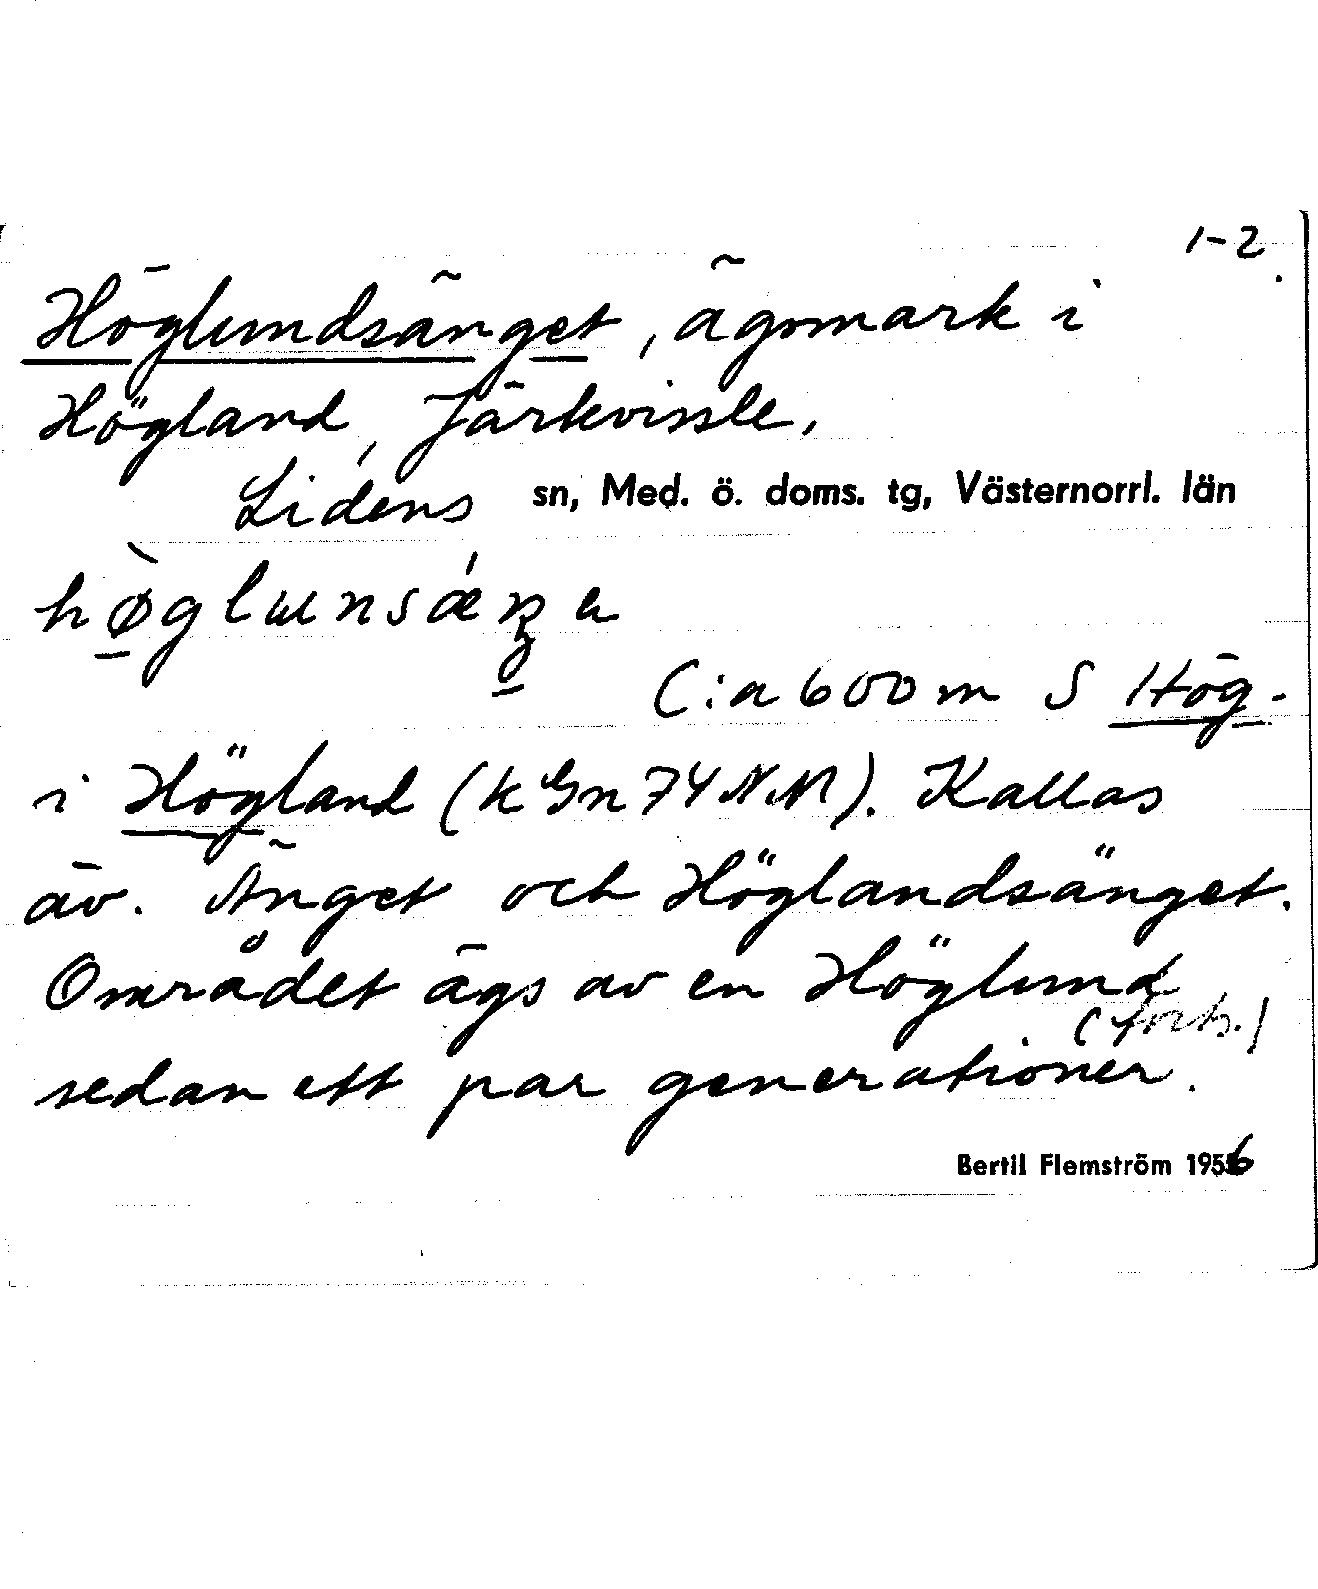 1-2
Höglundsänget, ägomark i
Högland, Järkvissle,
Lidens sn, Med. ö. doms. tg, Västernorrl. län
C:a 600 m S Hög-
i Högland (k Gn 74 NM). Kallas
äv. Änget och Höglandsänget.
Området ägs av en Höglund
(forts.)
sedan ett par generationer.
Bertil Flemström 1956